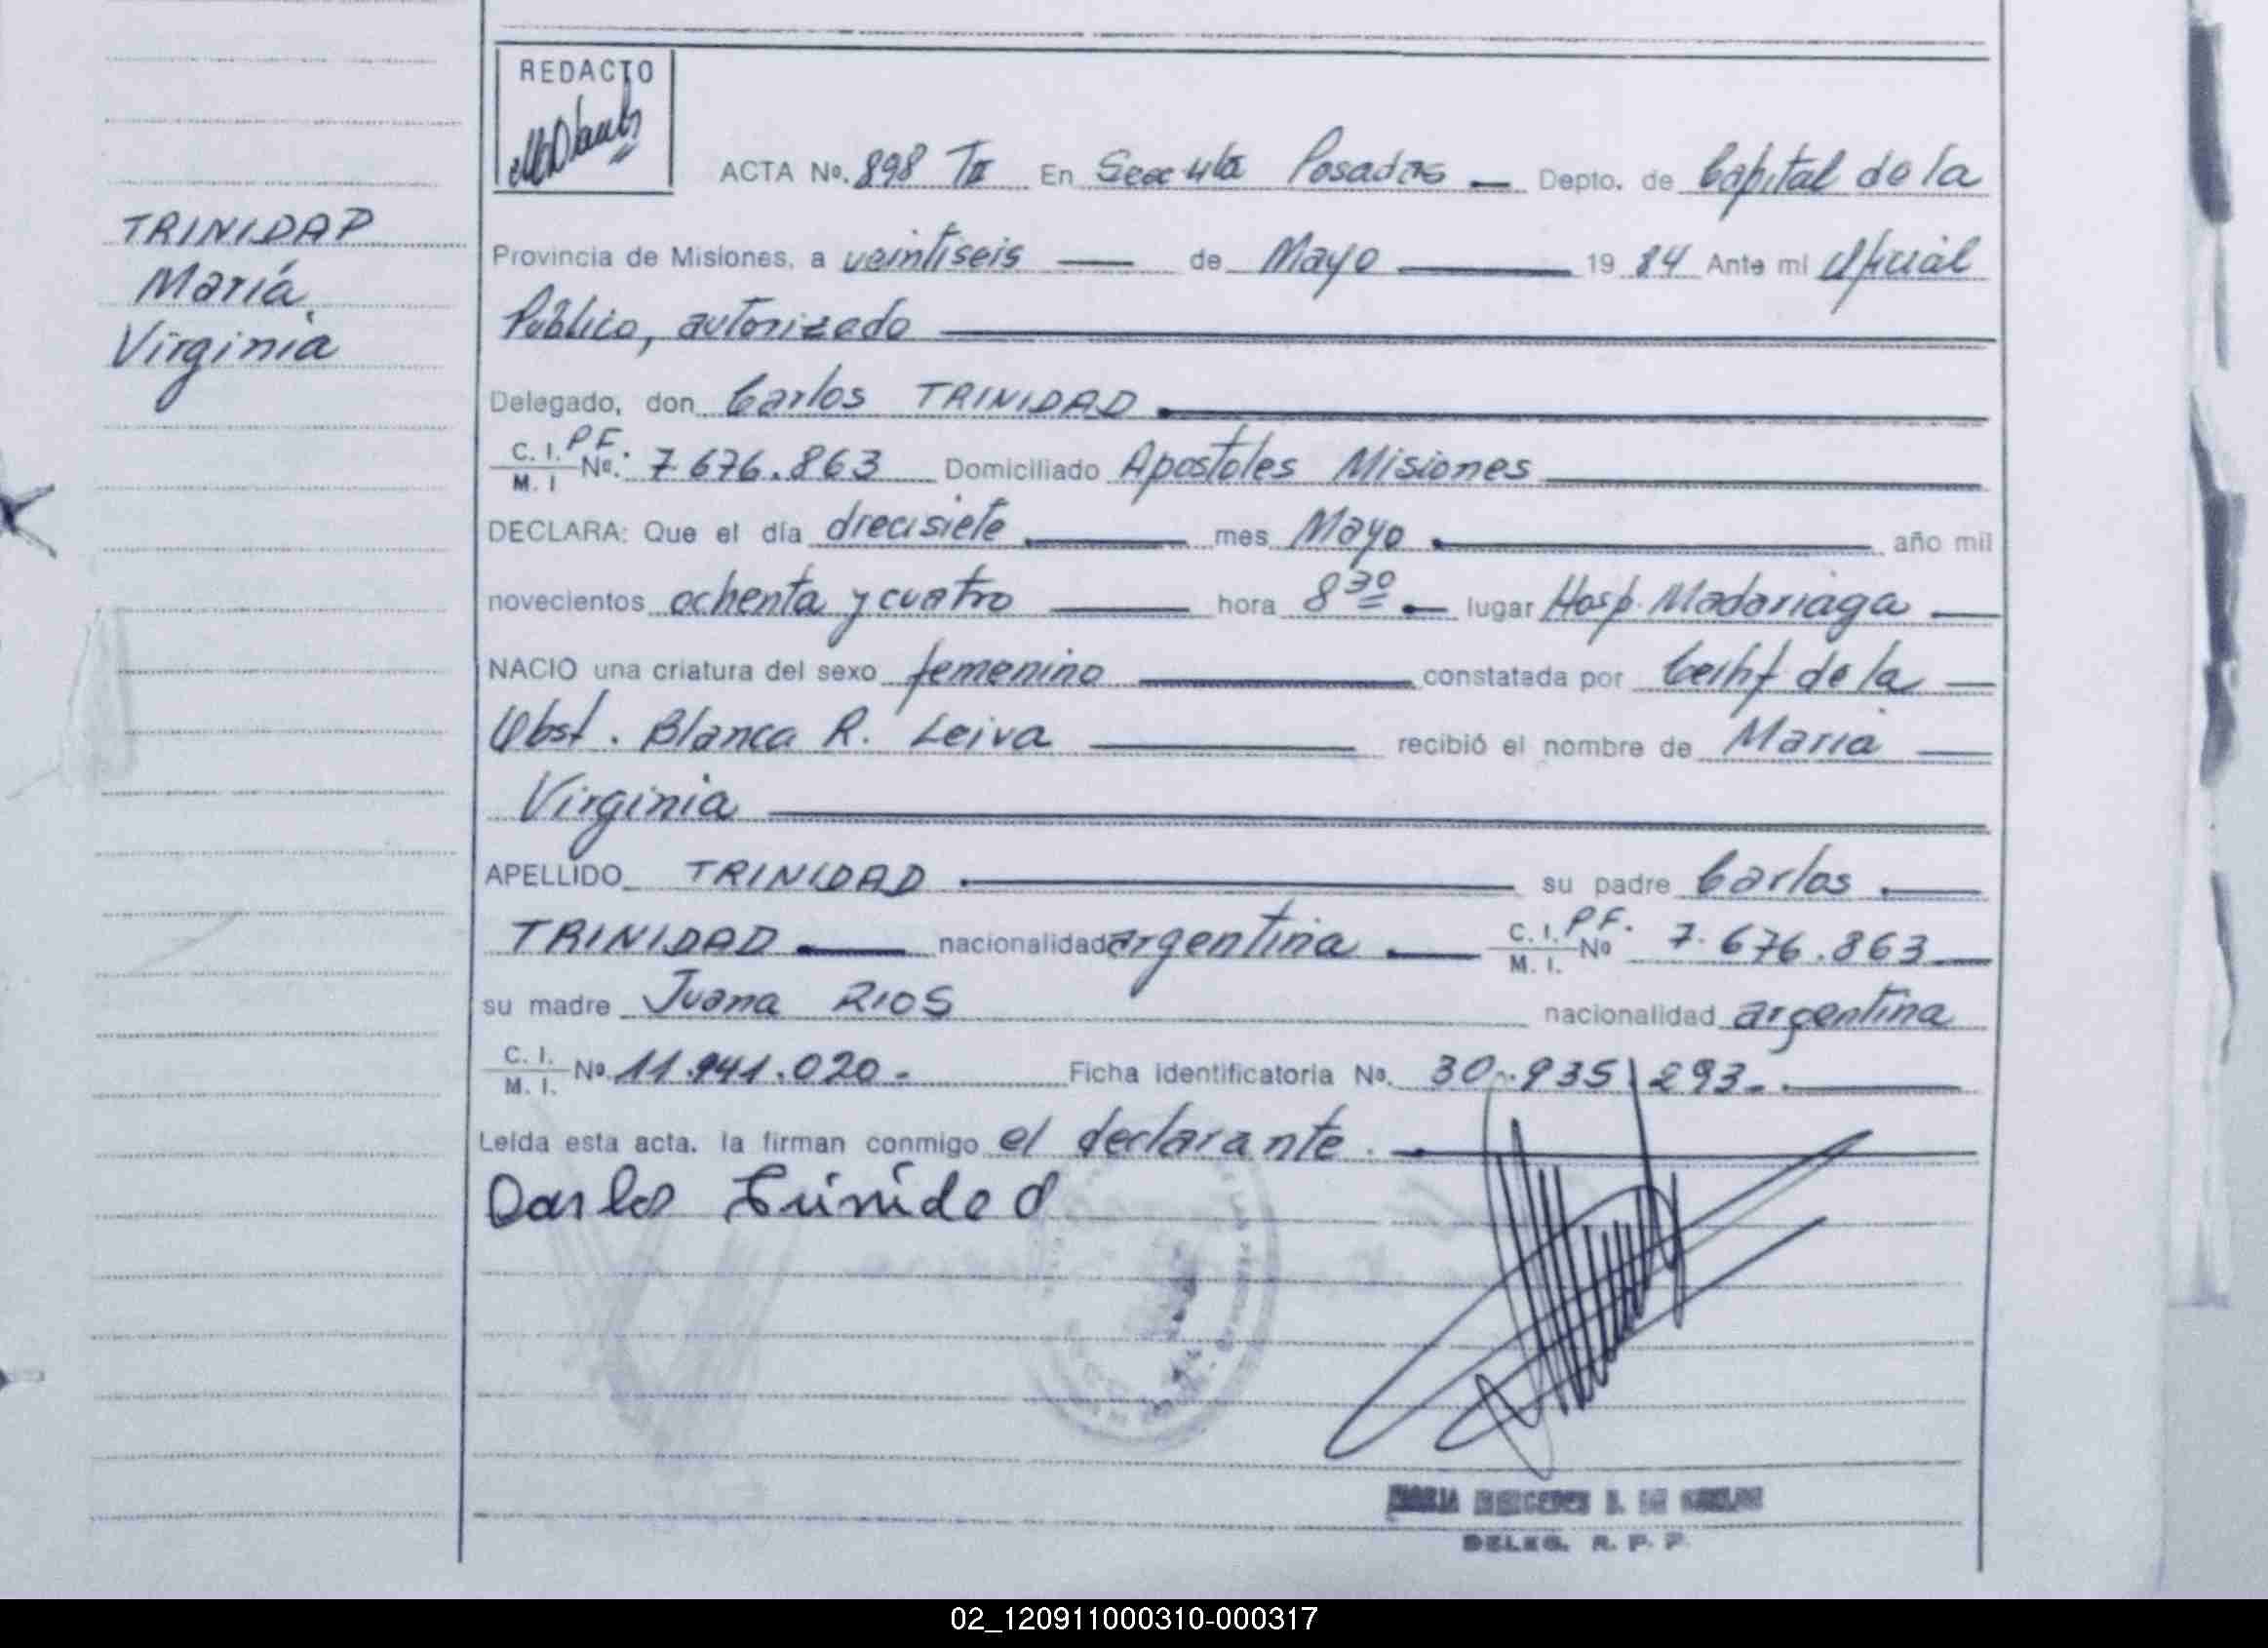 REDACTO
ACTA No. 898 TII En Secc 4ta Posadas Depto. de Capital de la
TRINIDAD
María
Virginia
Provincia de Misiones, a veintiseis de Mayo 19 84 Ante mi Oficial
Público, autorizado
Delegado, don Carlos TRINIDAD
C. I. PF.
M. I No. 7.676.863 Domiciliado Apostoles Misiones
DECLARA: Que el día diecisiete mes Mayo año mil
novecientos ochenta y cuatro hora 8 30 lugar Hosp. Madariaga
NACIO una criatura del sexo femenino constatada por Certif de la
Obst. Blanca R. Leiva recibió el nombre de María
Virginia
APELLIDO TRINIDAD su padre Carlos
TRINIDAD nacionalidad argentina C. I. PF. M. I. No 7.676.863
su madre Juana RIOS nacionalidad argentina
C. I. M. I. No 11.941.020.- Ficha identificatoria No. 30.935.293.-
Leída esta acta. la firman conmigo el declarante.
Carlos Trinidad
MARIA MERCEDES
DELEG. R. P. P.
02_120911000310-000317